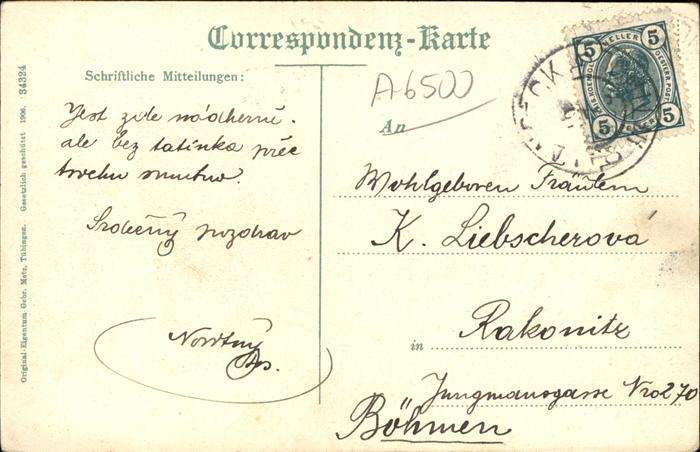 Correspondenz-Karte
Schriftliche Mitteilungen:
A6500
An
Jest zde nádherně.
ale bez tatínka přec
trochu smutno.
Srdečný pozdrav
Wohlgeboren Fräulein
K. Liebscherová
in Rakonitz
Jungmansgasse Nro 270
Böhmen
5 HELLER 5
5 HELLER 5
Original-Eigentum Gebr. Metz, Tübingen. Gesetzlich geschützt 1906. 34324